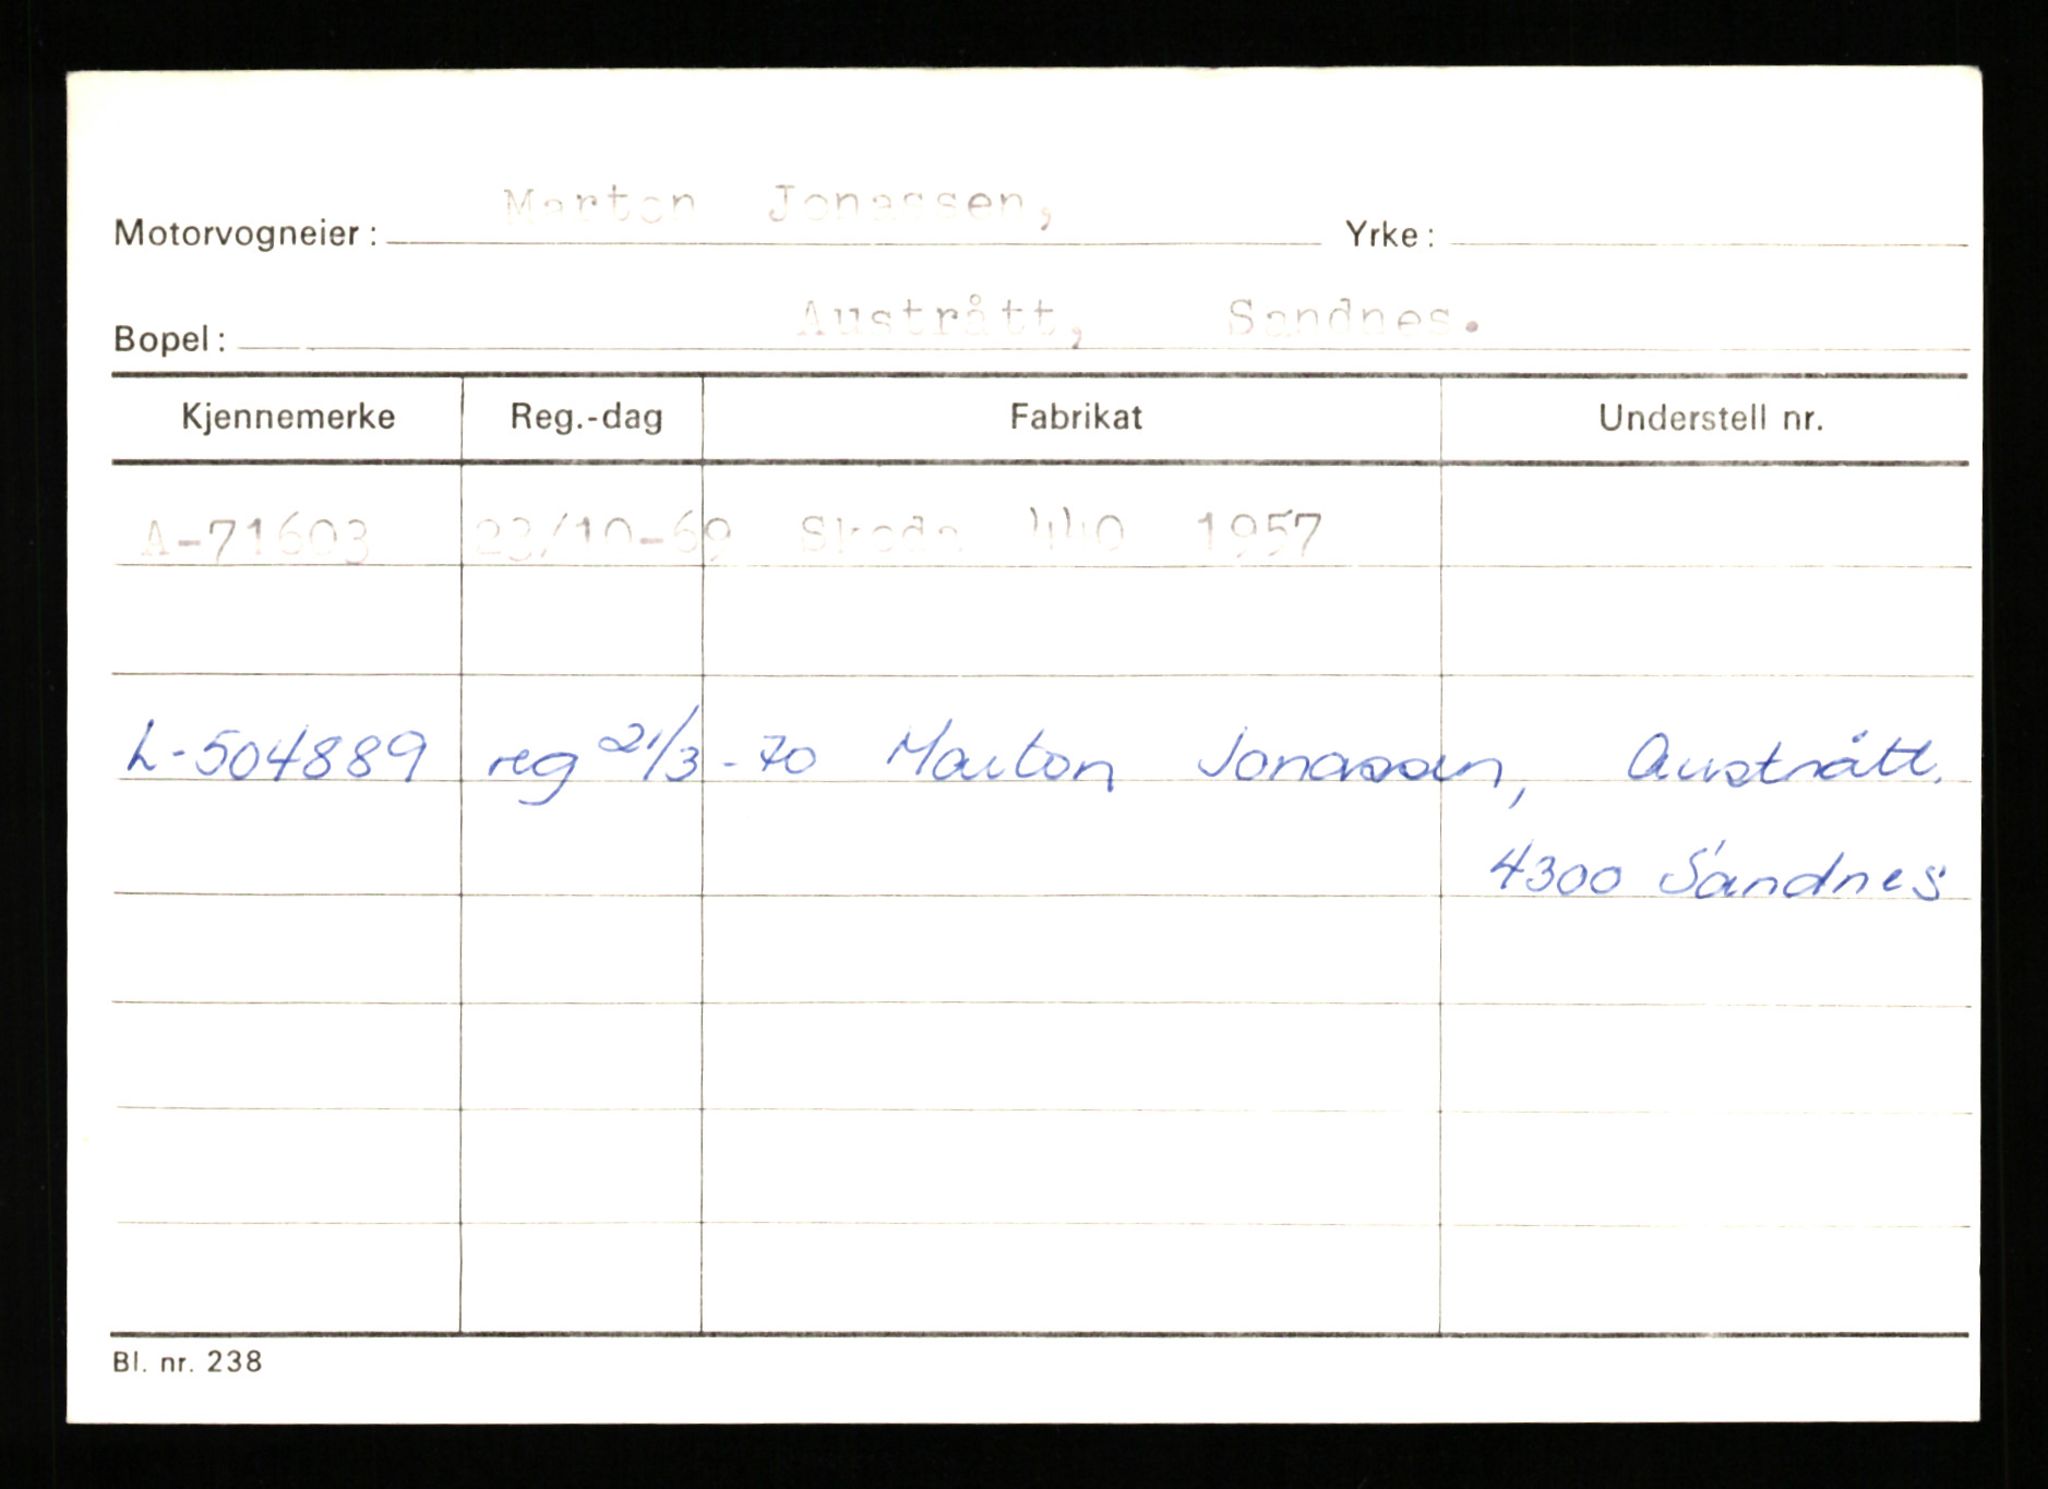 Motorvogneier: Marton Jonassen, Yrke:
Bopel: Austrått, Sandnes.
Kjennemerke Reg.-dag Fabrikat Understell nr.
A-71603 23/10-69 Skoda 440 1957
L-504889 reg 21/3-70 Marton Jonassen, Austrått.
4300 Sandnes
Bl. nr. 238